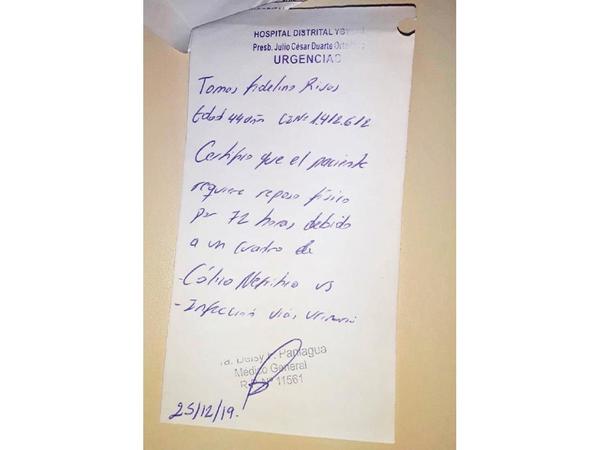 HOSPITAL DISTRITAL
Presb. Julio César Duarte
URGENCIAS
Tomas fidelino Rivas
Edad 44 años CI Nº
Certifico que el paciente
requiere reposo físico
por 72 horas debido
a un cuadro de
- Cólico Nefritico vs
- Infección vías urinaria
Paniagua
Médico General
11561
25/12/19.